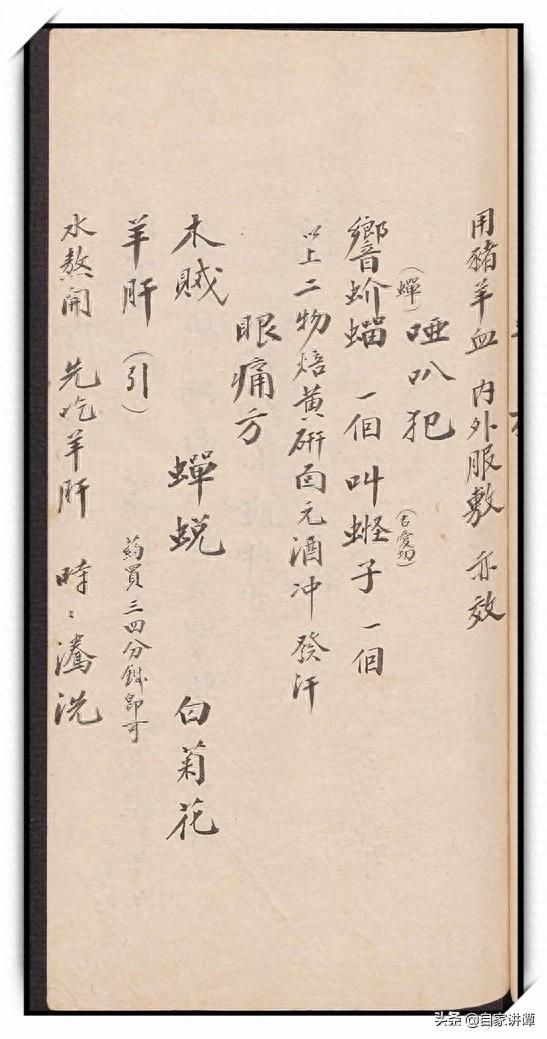 用豬羊血 内外服敷 亦效
啞叭犯
響蚧蝐(蟬) 一個 叫蛏子(古愛切) 一個
以上二物焙黄研面元酒冲發汗
眼痛方
木賊 蟬蜕 白菊花
羊肝(引) 药買三四分錢即可
水熬開 先吃羊肝 時〻 洗
头条 @自家讲谭